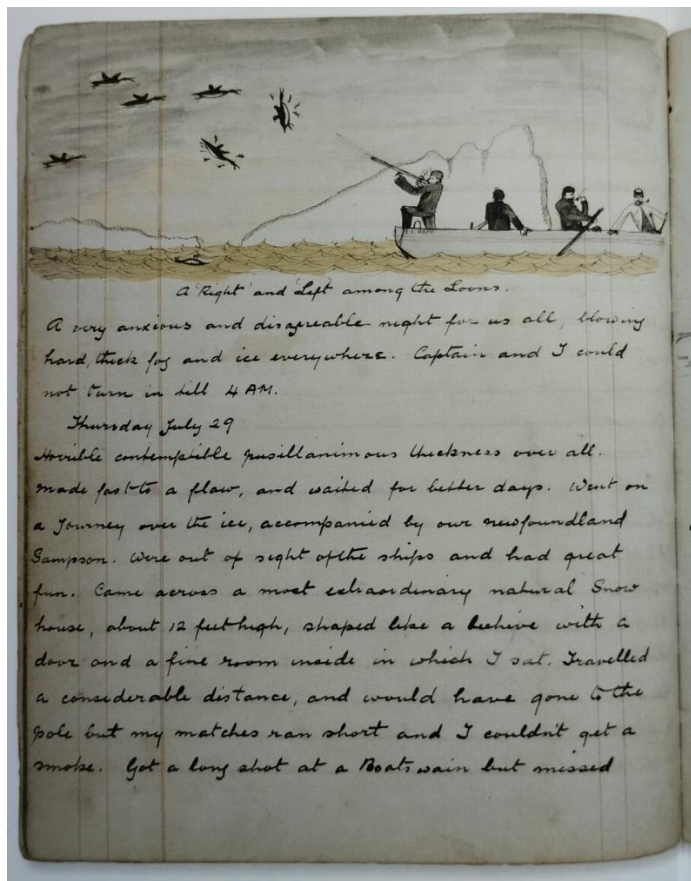 A 'Right' and 'Left' among the Loons.
A very anxious and disagreeable night for us all, blowing
hard, thick fog and ice everywhere. Captain and I could
not turn in till 4 AM.
Thursday July 29
Horrible contemptible pusillanimous thickness over all.
Made fast to a flaw, and waited for better days. Went on
a Journey over the ice, accompanied by our newfoundland
Sampson. Were out of sight of the ships and had great
fun. Came across a most extraordinary natural Snow
house, about 12 feet high, shaped like a beehive with a
door and a fine room inside in which I sat. Travelled
a considerable distance, and would have gone to the
pole but my matches ran short and I couldn't get a
smoke. Got a long shot at a Boatswain but missed